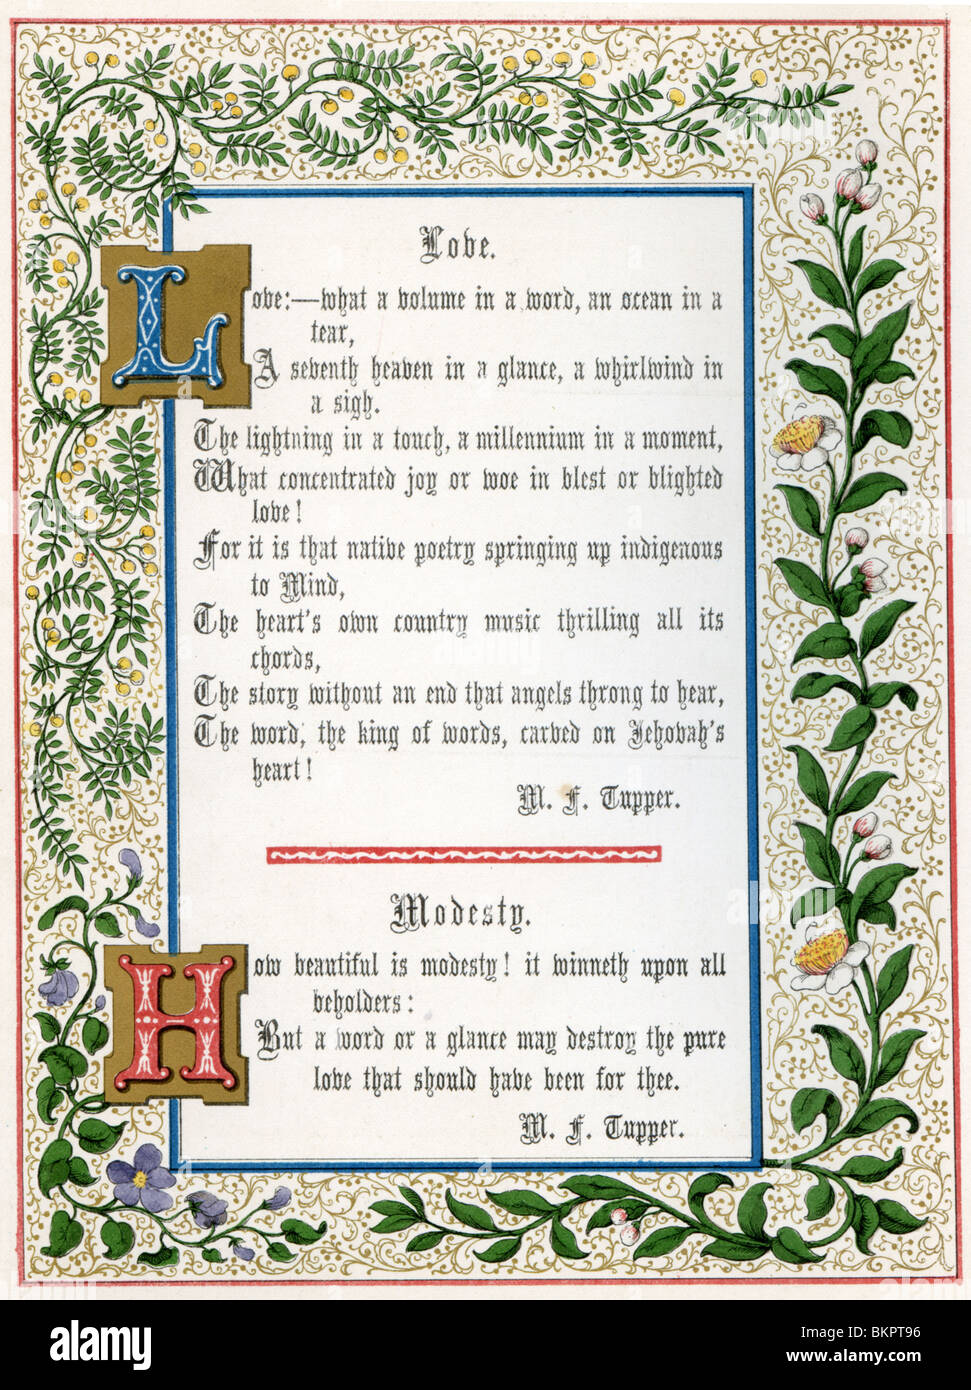 Love.
Love:—what a volume in a word, an ocean in a
tear,
A seventh heaven in a glance, a whirlwind in
a sigh.
The lightning in a touch, a millennium in a moment,
What concentrated joy or woe in blest or blighted
love!
For it is that native poetry springing up indigenous
to Mind,
The heart's own country music thrilling all its
chords,
The story without an end that angels throng to hear,
The word, the king of words, carved on Jehovah's
heart!
M. F. Tupper.
Modesty.
How beautiful is modesty! it winneth upon all
beholders:
But a word or a glance may destroy the pure
love that should have been for thee.
M. F. Tupper.
alamy
Image ID: BKPT96
www.alamy.com